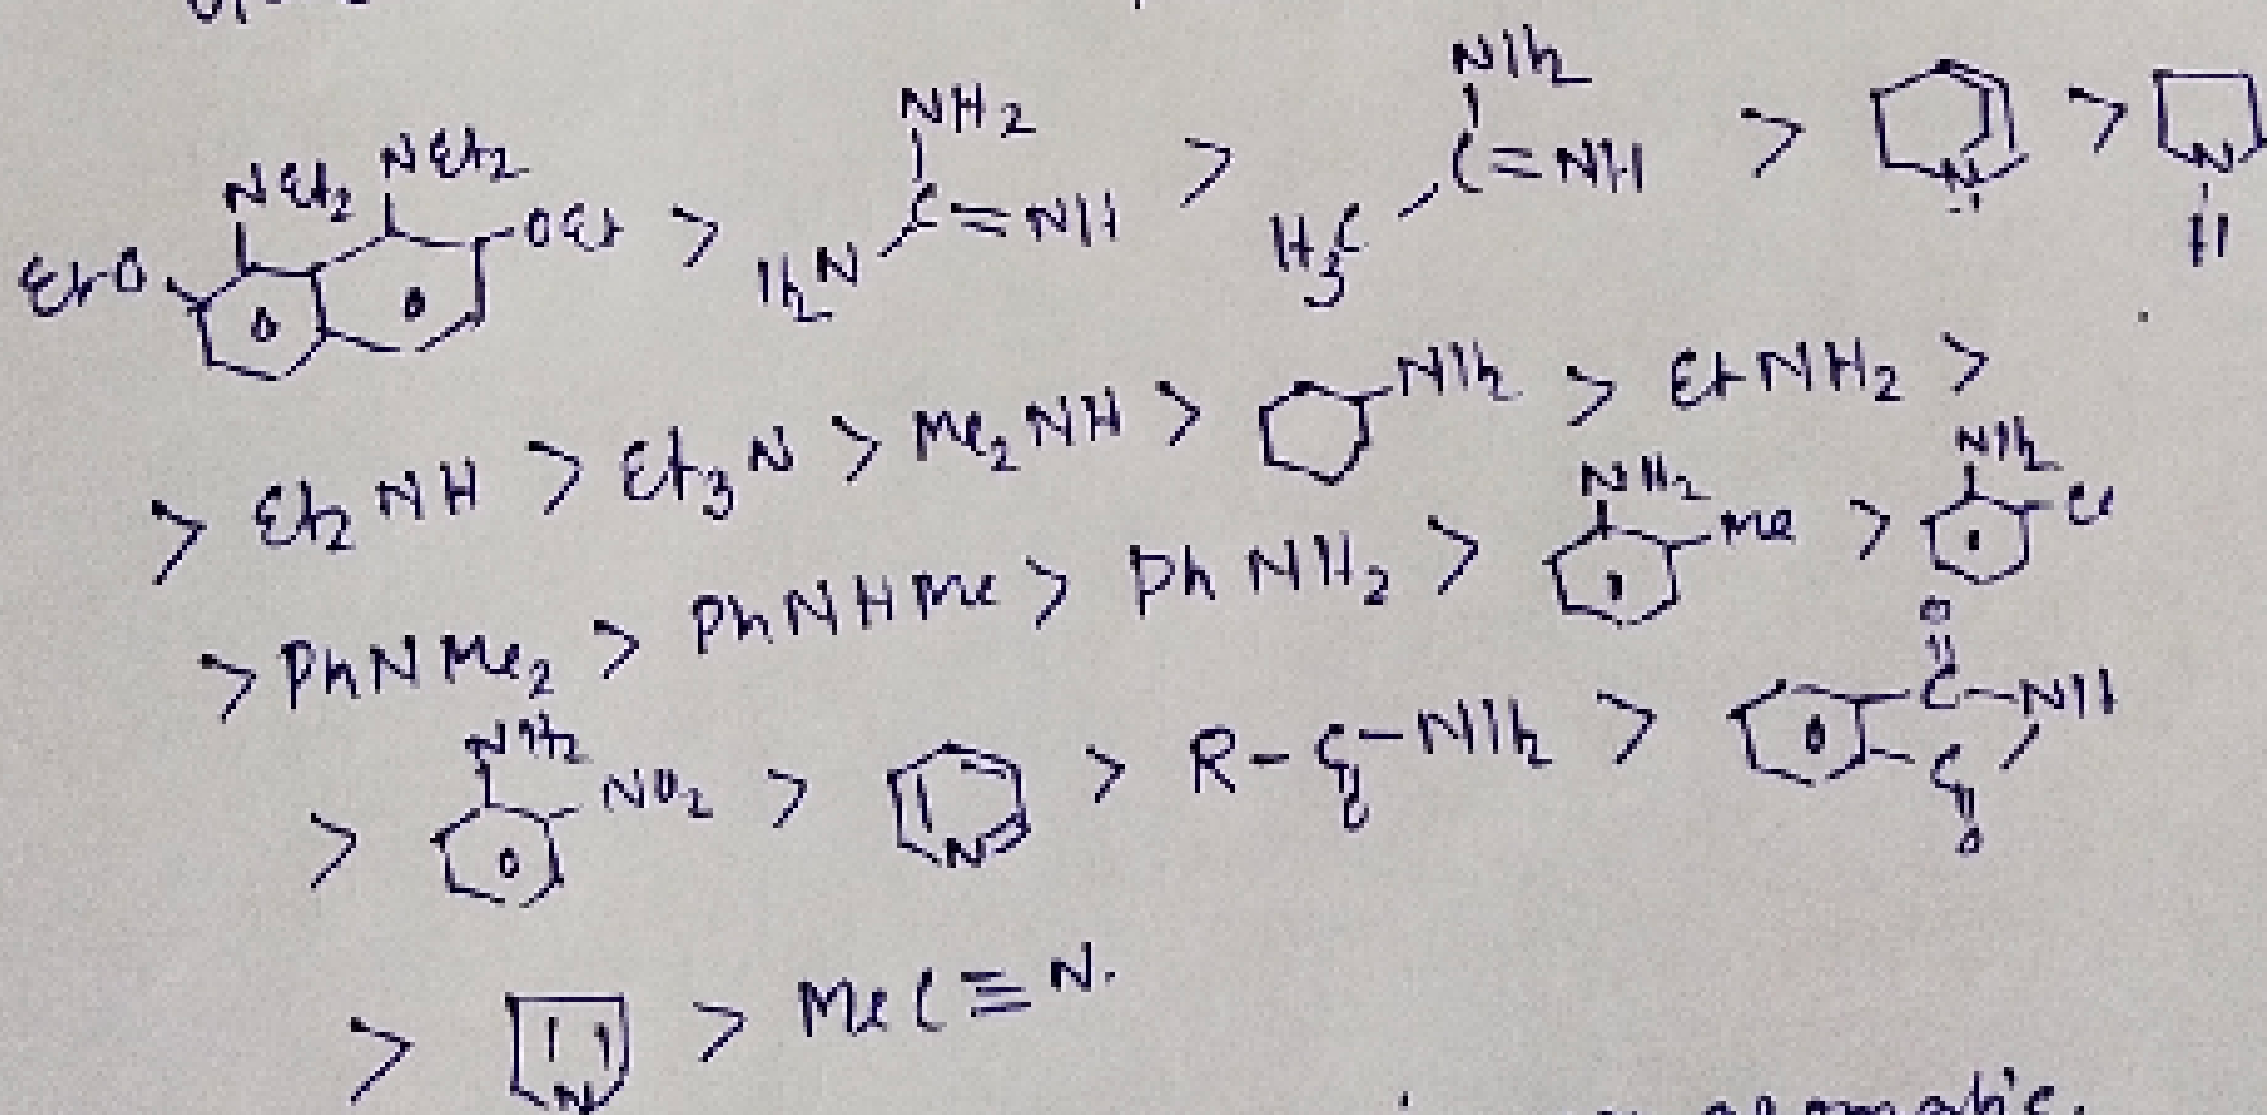 NEt2 NEt2
EtO OEt > NH2 C=NH H2N > NH2 C=NH H3C > N > N H
> Et2NH > Et3N > Me2NH > NH2 > EtNH2 >
> PhNMe2 > PhNHMe > PhNH2 > NH2 Me > NH2 Cl
> NH2 NO2 > N > R-C-NH2 O > O C-NH C O
> N > MeC≡N.
aromatic.